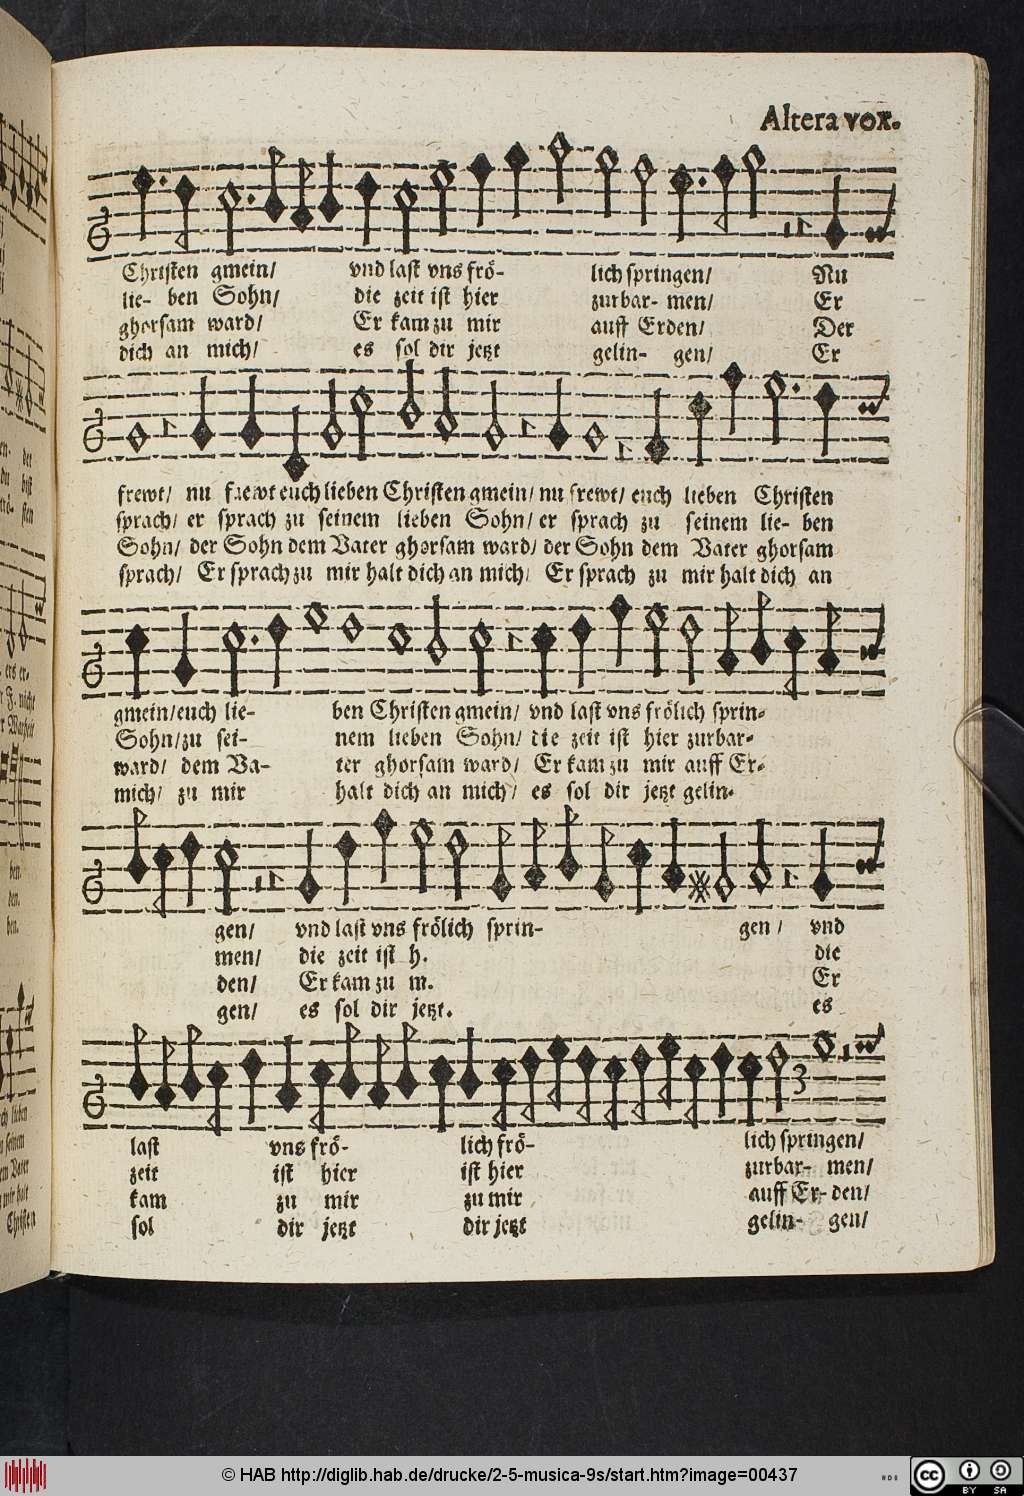 Altera vox.
Christen gmein/ vnd last vns frö- lich springen/ Nu
lie- ben Sohn/ die zeit ist hier zurbar- men/ Er
ghorsam ward/ Er kam zu mir auff Erden/ Der
dich an mich/ es sol dir jetzt gelin- gen/ Er
frewt/ nu frewt euch lieben Christen gmein/ nu frewt/ euch lieben Christen
sprach/ er sprach zu seinem lieben Sohn/ er sprach zu seinem lie- ben
Sohn/ der Sohn dem Vater ghorsam ward/ der Sohn dem Vater ghorsam
sprach/ Er sprach zu mir halt dich an mich/ Er sprach zu mir halt dich an
gmein/ euch lie- ben Christen gmein/ vnd last vns frölich sprin-
Sohn/ zu sei- nem lieben Sohn/ die zeit ist hier zurbar-
ward/ dem Va- ter ghorsam ward/ Er kam zu mir auff Er-
mich/ zu mir halt dich an mich/ es sol dir jetzt gelin-
gen/ vnd last vns frölich sprin- gen/ vnd
men/ die zeit ist h. die
den/ Er kam zu m. Er
gen/ es sol dir jetzt. es
last vns frö- lich frö- lich springen/
zeit ist hier ist hier zurbar- men/
kam zu mir zu mir auff Er- den/
sol dir jetzt dir jetzt gelin- gen/
© HAB http://diglib.hab.de/drucke/2-5-musica-9s/start.htm?image=00437
cc BY SA